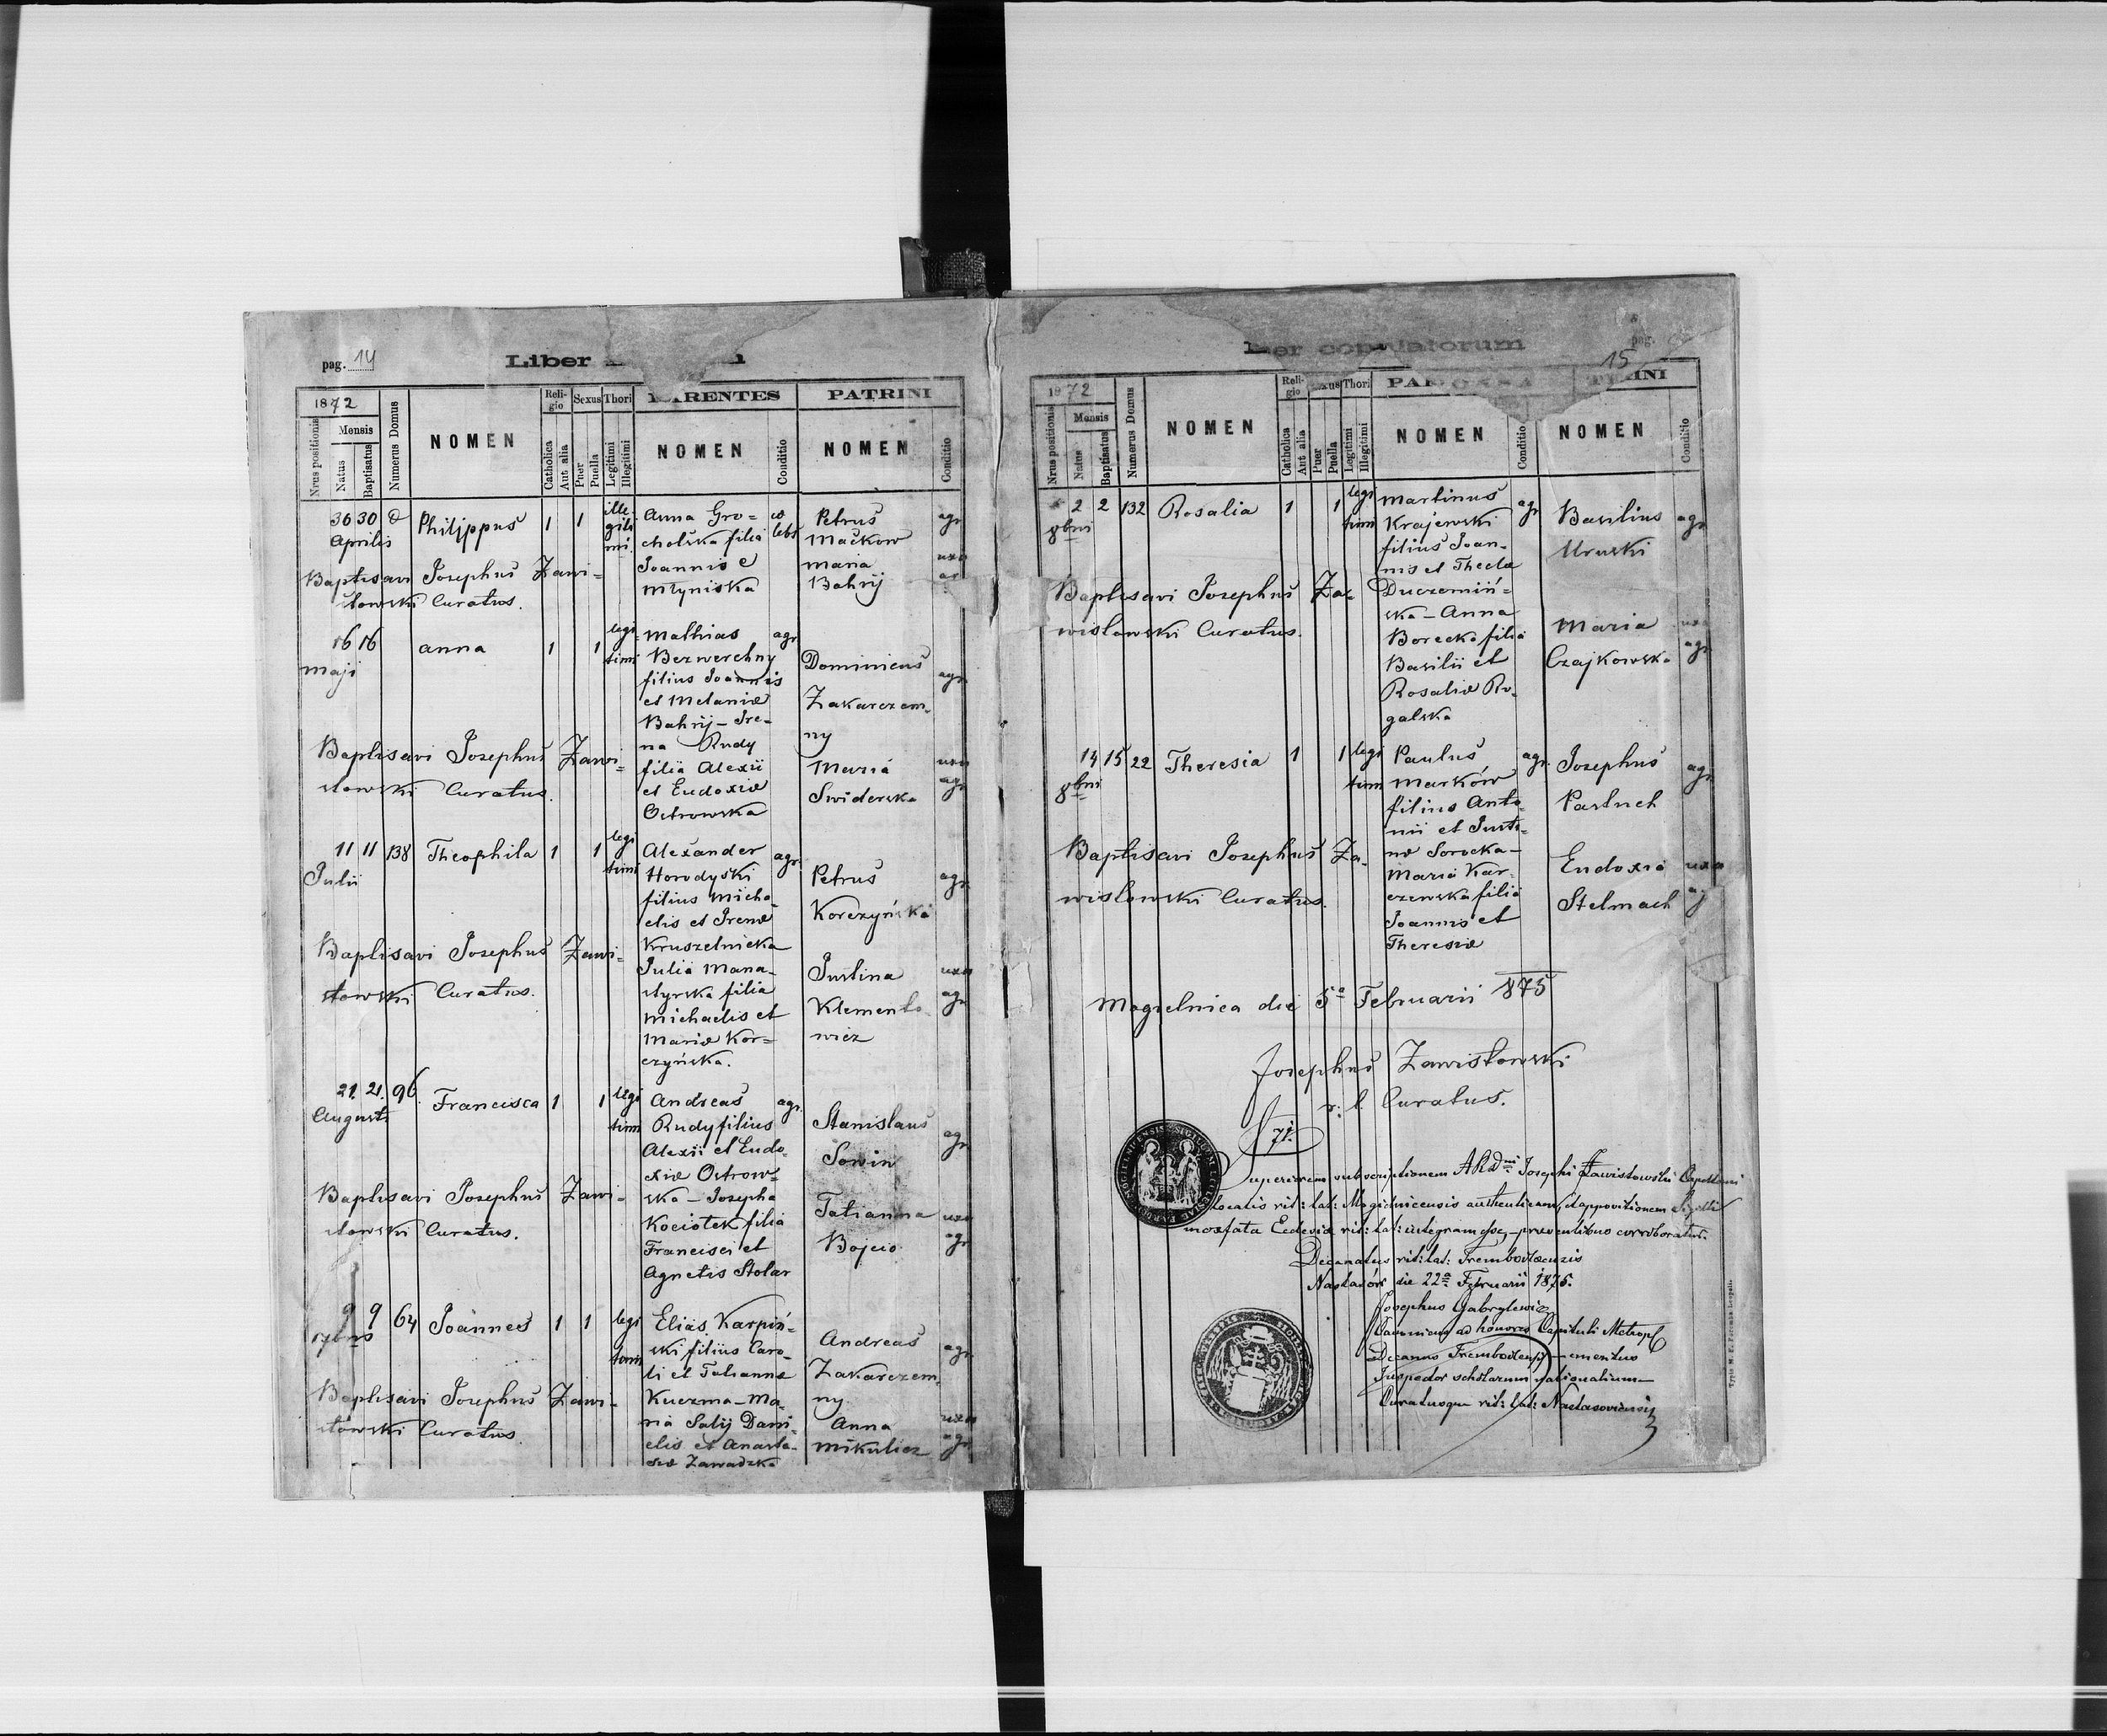 pag. 14
Liber
1872
Nrus positionis
Mensis
Natus
Baptisatus
Numerus Domus
NOMEN
Religio
Catholica
Aut alia
Sexus
Puer
Puella
Thori
Legitimi
Illegitimi
PARENTES
NOMEN
Conditio
PATRINI
NOMEN
Conditio
30 30
Aprilis
Philippus 1 1
ille-
giti
mi.
Anna Gro=
cholska filia
Joannis e
Młyniska
Petrus agr
Maćkow
Maria uxo
Bahrij
Baptisavi Josephus Zawi=
słowski Curatus.
16 16
Maji
Anna 1 1
legi
timi
Mathias agr
Bezwerchny
filius Joannis
et Melaniæ
Bahrij – Ire-
na Rudy
filia Alexii
et Eudoxiæ
Ostrowska
Dominicus
agr
Zakarczem-
ny
Maria uxo
Swiderska agr
Baptisavi Josephus Zawi=
słowski Curatus.
11 11 138 Theophila 1 1
Julii
legi
timi
Alexander
Horodyski agr.
filius Micha-
elis et Irenæ
Kruszelnicka
Julia Mana-
styrska filia
Michaelis et
Mariæ Kor=
czyńska.
Petrus agr
Korczyński
Justina uxo
Klemento agr
wicz
Baptisavi Josephus Zawi-
słowski Curatus.
21. 21. 96. Francisca 1 1
Augusti
legi
timi
Andreas agr.
Rudy filius
Alexii et Eudo-
xiæ Ostrow-
ska – Josepha
Kociołek filia
Francisci et
Agnetis Stolar
Stanislaus
agr
Sowin
Tatianna uxo
Bojcio agr
Baptisavi Josephus Zawi-
słowski Curatus.
9 9 64 Joannes 1 1
7bris
legi
timi
Elias Karpiń=
ski filius Caro-
li et Tatiannæ
Kuczma – Ma-
ria Salij Dani-
elis et Anasta-
siæ Zawadzka
Andreas agr
Zakarczem-
ny
Anna uxo
Mikulicz agr
Baptisavi Josephus Zawi-
słowski Curatus
ber copulatorum
pag.
15
1872
Nrus positionis
Mensis
Natus
Baptisatus
Numerus Domus
NOMEN
Religio
Catholica
Aut alia
Puer
Puella
Thori
Legitimi
Illegitimi
NOMEN
Conditio
NOMEN
Conditio
2 2 132 Rosalia 1 1
8bris
legi
timi
Martinus agr
Krajewski
filius Joan-
nis et Theclæ
Duczemiń-
ska – Anna
Borecka filia
Basilii et
Rosaliæ Ro-
galska
Basilius agr
Uruski
Maria uxo
Czajkowska agr
Baptisavi Josephus Za=
wisłowski Curatus.
14 15 22 Theresia 1 1
8bris
legi
timi
Paulus agr.
Marków
filius Anto-
nii et Justi-
næ Sorocka –
Maria Kar-
czewska filia
Joannis et
Theresiæ
Josephus agr
Pastuch
Eudoxia uxo
Stelmach
Baptisavi Josephus Za-
wisłowski Curatus.
Mogielnica die 5a Februarii 1875
Josephus Zawisłowski
r. l. Curatus.
71.
Superiorem subscriptionem Josephi Zawistowski Capellani
localis rit: lat: Mogielnicensis authenticam,
Ecclesiæ rit: lat: integram esse, – præsentibus corroboratur.
Decanatus rit: lat: Trembowlensis
Nastasów die 22a Februarii 1875.
Josephus Gabrylewicz
Canonicus ad honores Capituli Metropl
Decanus Trembowlensis – emeritus
Inspector scholarum nationalium –
Curatusque rit: lat: Nastasoviensis